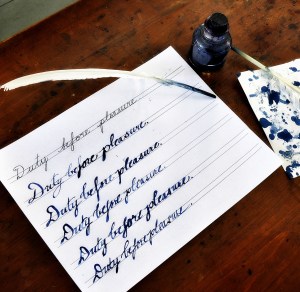 Duty before pleasure
Duty before pleasure.
Duty before pleasure.
Duty before pleasure
Duty before pleasure.
Duty before pleasure.